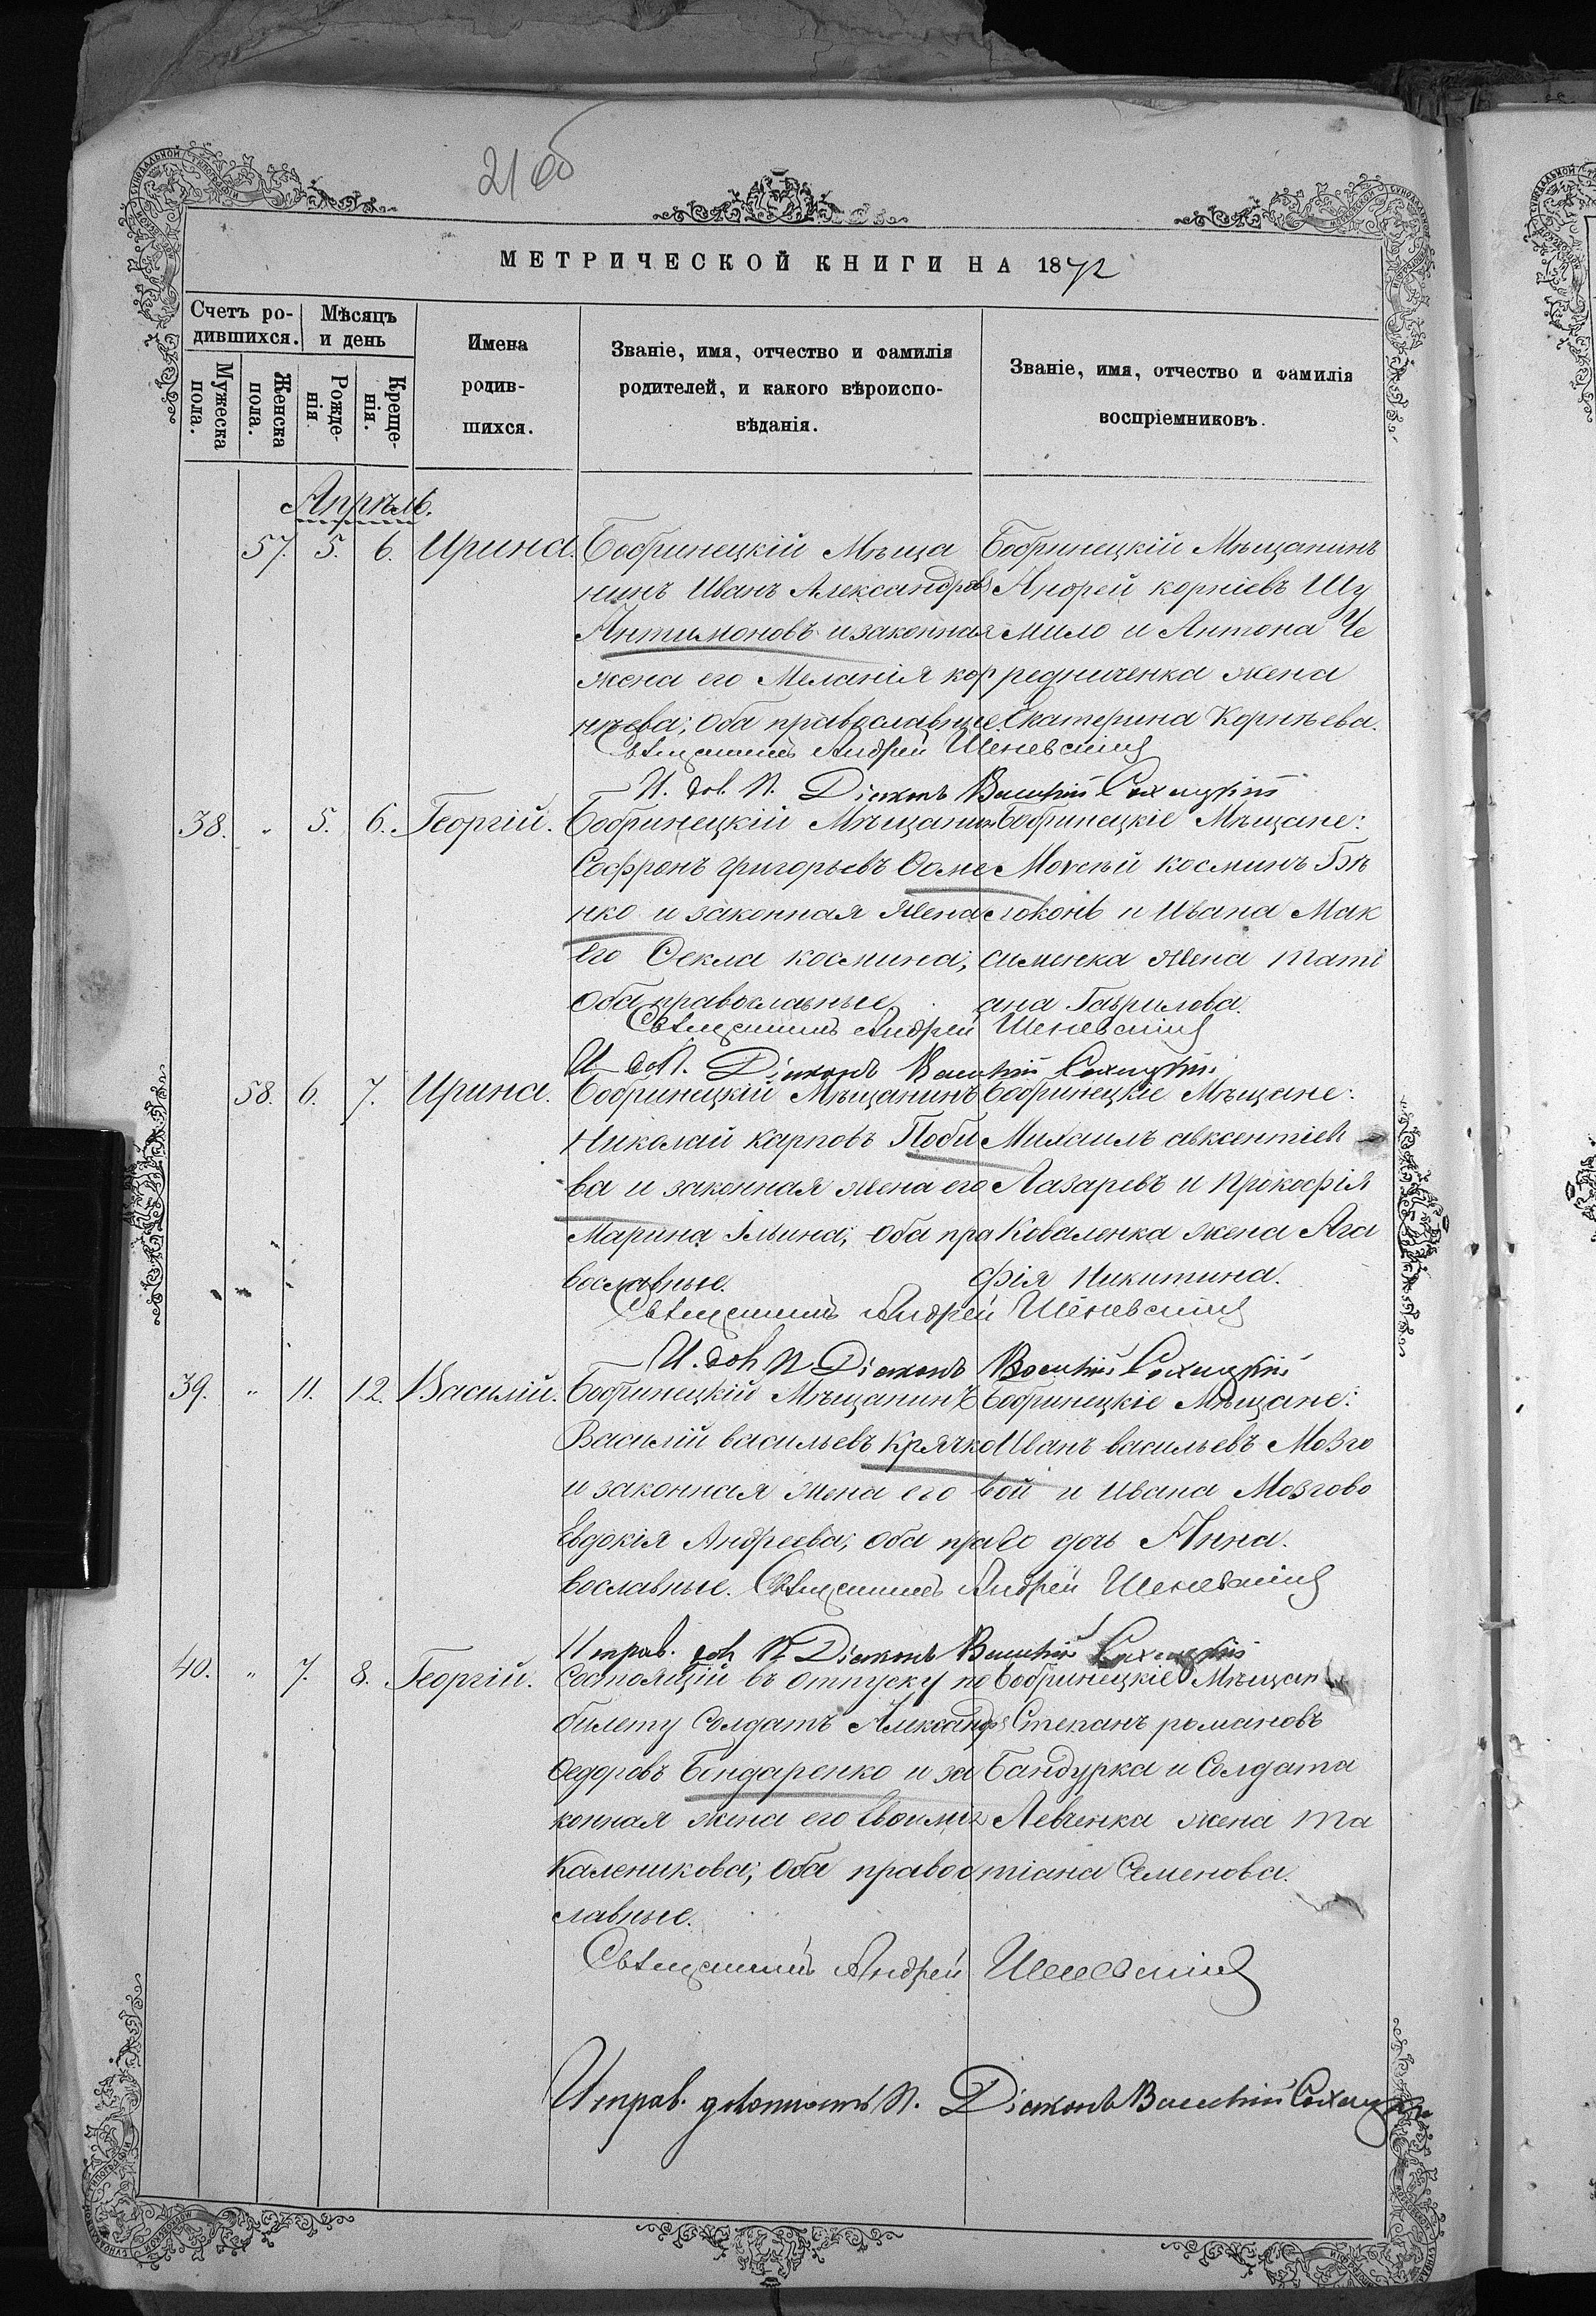 21 об
МЕТРИЧЕСКОЙ КНИГИ НА 1872
Счетъ ро-
дившихся.
Мужеска
пола.
Женска
пола.
Мѣсяцъ
и день
Рожде-
нія
Креще-
нія.
Имена
родив-
шихся.
Званіе, имя, отчество и фамилія
родителей, и какого вѣроиспо-
вѣданія.
Званіе, имя, отчество и фамилія
воспріемниковъ.
Апрѣль.
57. 5. 6. Ирина.
Бобринецкій Мѣща
нинъ Иванъ Александровъ
Антимоновъ и законная
жена его Меланія кор
нѣева; Оба православные.
Бобринецкій Мѣщанинъ
Андрей корніевъ Шу
мило и Антона Че
редниченка жена
Екатерина Корнѣева.
Священникъ Андрей Шеневскій
И. дол. П. Діаконъ Василій Сахацкій
38. " 5. 6. Георгій.
Бобринецкій Мѣщанинъ
Софронъ григорьевъ Ѳоме
нко и законная жена
его Ѳекла космина;
Оба православные
Бобринецкіе Мѣщане:
Моисѣй косминъ Бѣ
локонь и Ивана Мак
сименка жена Тати
ана Гаврилова.
Священникъ Андрей Шеневскій
И. дол. П. Діаконъ Василій Сахацкій
58. 6. 7. Ирина.
Бобринецкій Мѣщанинъ
Николай карповъ Поби
ва и законная жена его
Марина Ільина; Оба пра
вославные.
Бобринецкіе Мѣщане:
Михаилъ авксентіевъ
Лазаревъ и Прокофія
Коваленка жена Ага
фія Никитина.
Священникъ Андрей Шеневскій
И. дол. П. Діаконъ Василій Сахацкій
39. " 11. 12. Василій.
Бобринецкій Мѣщанинъ
Василій васильевъ Крячко
и законная жена его
Евдокія Андреева; Оба пра
вославные.
Бобринецкіе Мѣщане:
Иванъ васильевъ Мозго
вой и Ивана Мозгово
го дочь Анна.
Священникъ Андрей Шеневскій
Исправ. дол. П. Діаконъ Василій Сахацкій
40. " 7. 8. Георгій.
Состоящій въ отпуску по
билету Солдатъ Александръ
Ѳедоровъ Бондаренко и за
конная жена его
Каленикова; Оба правос
лавные.
Бобринецкіе Мѣщан
Степанъ романовъ
Бандурка и Солдата
Левченка жена Та
тіана Семенова.
Священникъ Андрей Шеневскій
Исправ. должность П. Діаконъ Василій Сахацкій